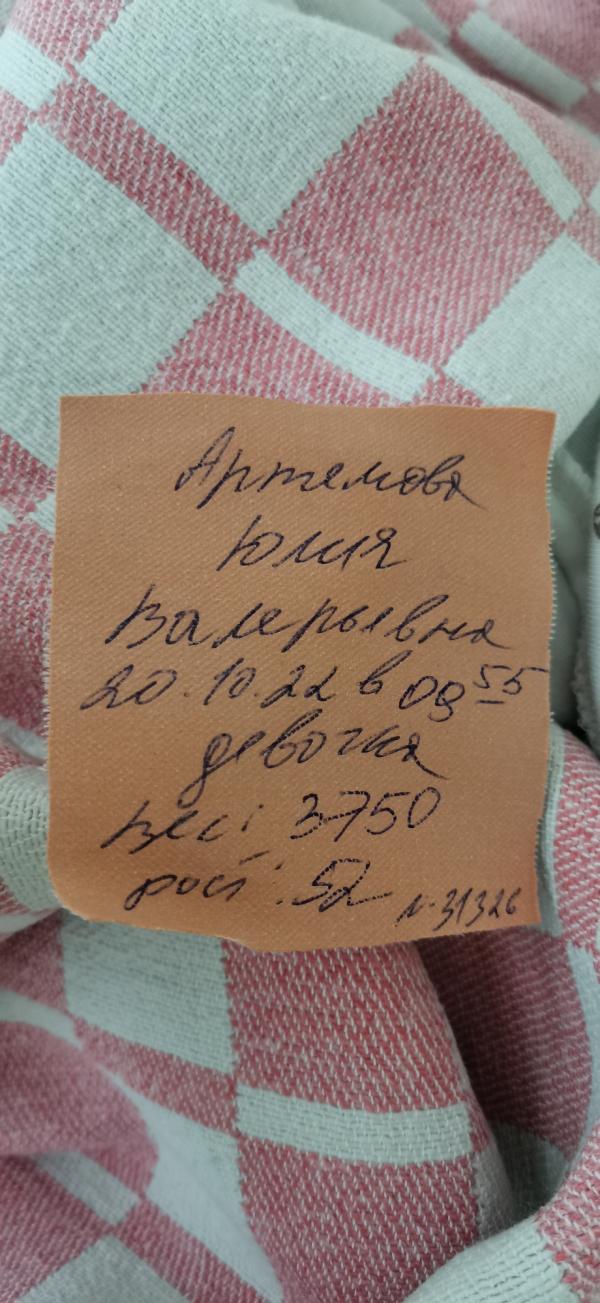 Артемова
Юлия
Валерьевна
20.10.22 в 09 55
девочка
вес: 3750
рост: 52
N. 31326